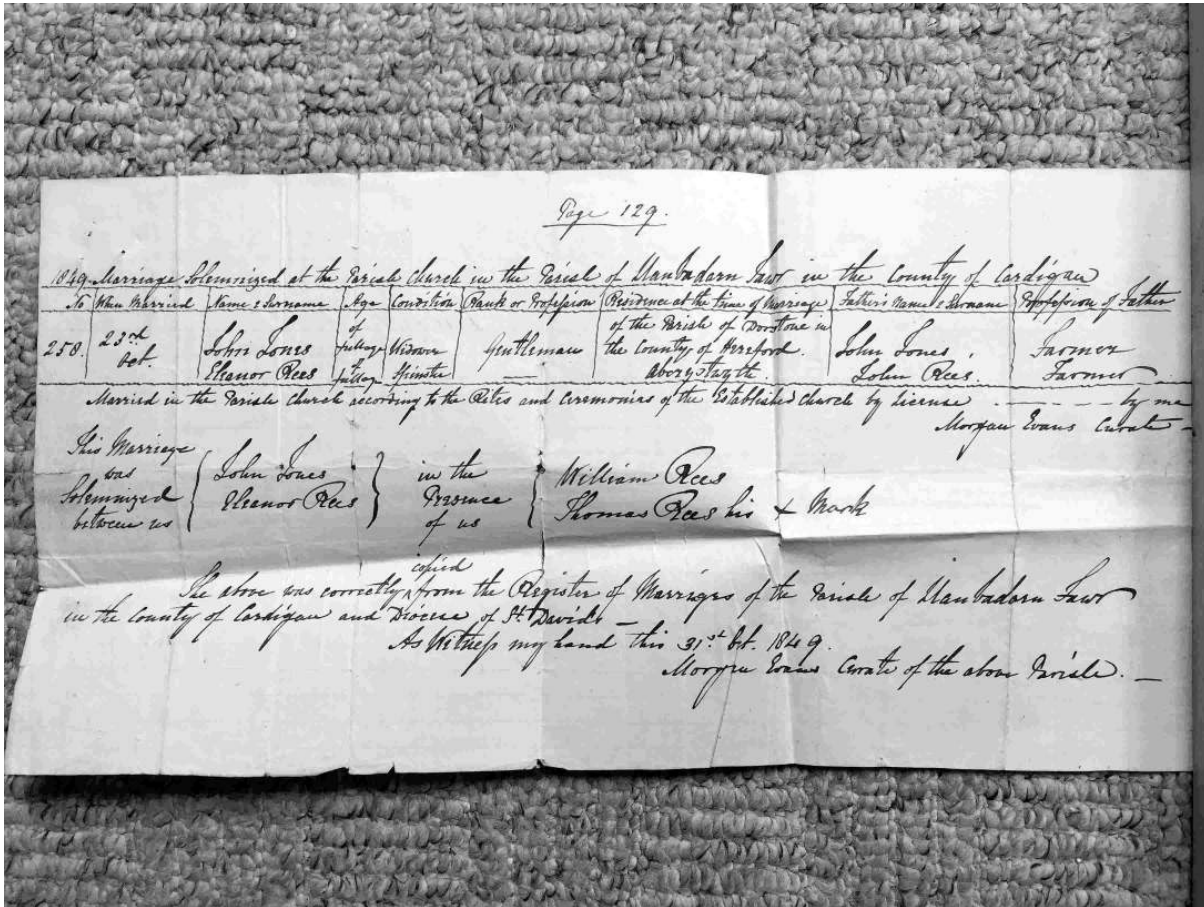 Page 129.
1849. Marriage Solemnized at the Parish Church in the Parish of Llanbadarn Fawr in the County of Cardigan
No When Married Name & Surname Age Condition Rank or Profession Residence at the time of Marriage Father's Name & Surname Profession of Father
258. 23rd Oct. John Jones of full age Widower Gentleman of the Parish of Dorstone in the County of Hereford. John Jones. Farmer
Eleanor Rees of full age Spinster — Aberystwyth John Rees. Farmer
Married in the Parish Church according to the Rites and Ceremonies of the Established Church by License — by me
Morgan Evans Curate —
This Marriage was Solemnized between us { John Jones Eleanor Rees } in the Presence of us { William Rees
Thomas Rees his x Mark
The above was correctly copied from the Register of Marriges of the Parish of Llanbadarn Fawr
in the County of Cardigan and Diocese of St. Davids —
As Witness my hand this 31st Oct. 1849.
Morgan Evans Curate of the above Parish. —